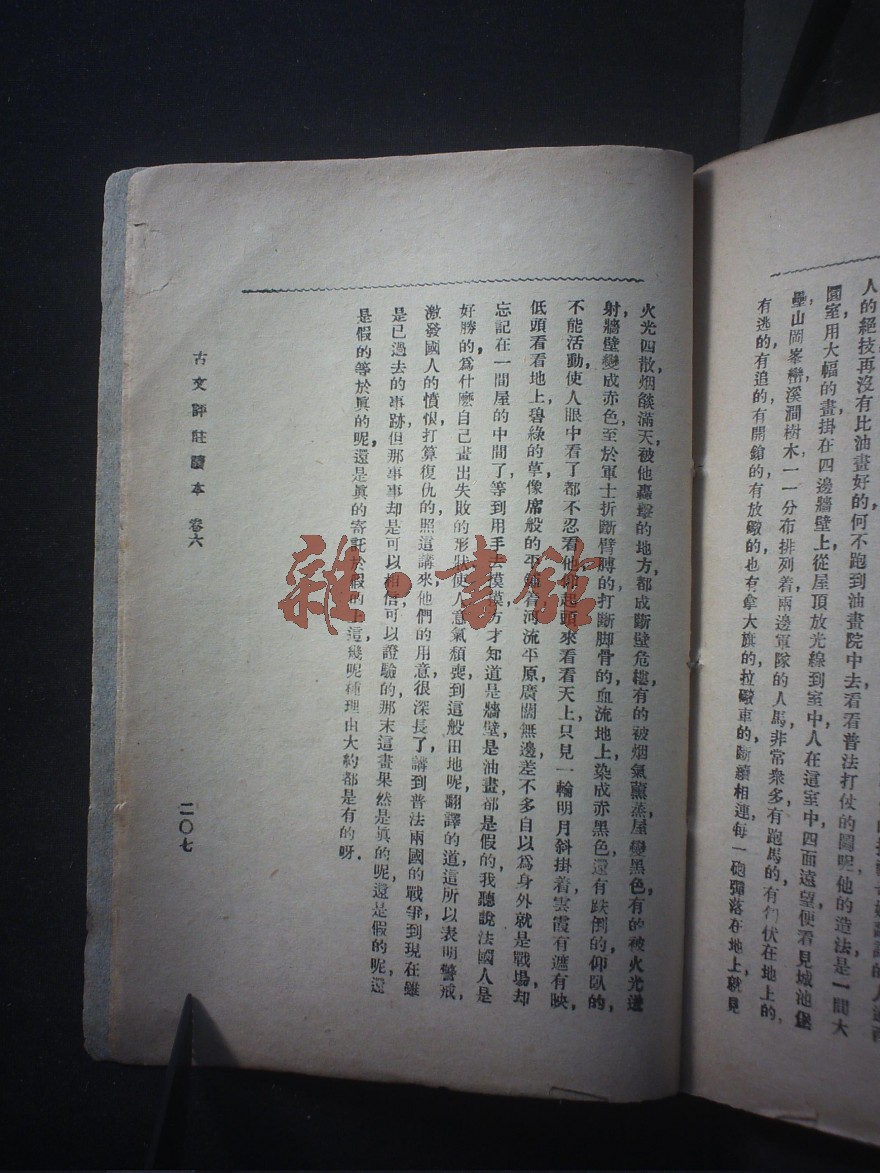 人的絕技再沒有比油畫好的何不跑到油畫院中去看看普法打仗的圖呢他的造法是一間大
圜室用大幅的畫掛在四邊牆壁上從屋頂放光線到室中人在這室中四面遠望便看見城池堡
壘山岡峯巒溪澗樹木一一分布排列着兩邊軍隊的人馬非常衆多有跑馬的有伏在地上的,
有逃的有追的有開鎗的有放礮的也有拿大旗的拉礮車的斷續相連每一砲彈落在地上就見
火光四散烟燄滿天被他轟擊的地方都成斷壁危樓有的被烟氣薰蒸屋變黑色有的被火光逬
射,牆壁變成赤色至於軍士折斷臂膊的打斷脚骨的血流地上染成赤黑色還有跌倒的仰臥的,
不能活動使人眼中看了都不忍看他仰起頭來看看天上只見一輪明月斜掛着雲霞有遮有映,
低頭看看地上碧綠的草像席般的平鋪着河流平原廣闊無邊差不多自以爲身外就是戰場却
忘記在一間屋的中間了等到用手去摸摸方才知道是牆壁是油畫都是假的我聽說法國人是
好勝的爲什麽自己畫出失敗的形狀使人意氣頹喪到這般田地呢翻譯的道這所以表明警戒,
激發國人的憤恨打算復仇的照這講來他們的用意很深長了講到普法兩國的戰爭到現在雖
是已過去的事跡但那事事却是可以相信可以證驗的那末這畫果然是眞的呢還是假的呢還
是假的等於眞的呢還是眞的寄託於假的上這幾呢種理由大約都是有的呀.
古文評註讀本 卷六
二〇七
雜·書館